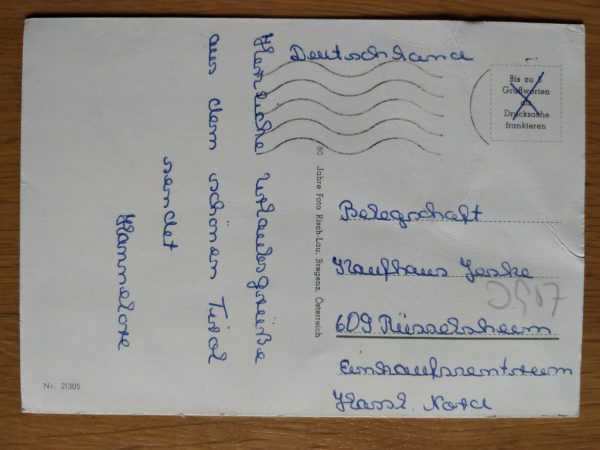 Deutschland
Herzliche Urlaubsgrüße
aus dem schönen Tirol
sendet
Hannelore
Bis zu 5
Grußworten
als
Drucksache
frankieren
90 Jahre Foto Risch-Lau, Bregenz, Österreich
Belegschaft
Kaufhaus Jeske
609 Rüsselsheim
Einkaufszentrum
Hassl. Nord
Nr. 21305